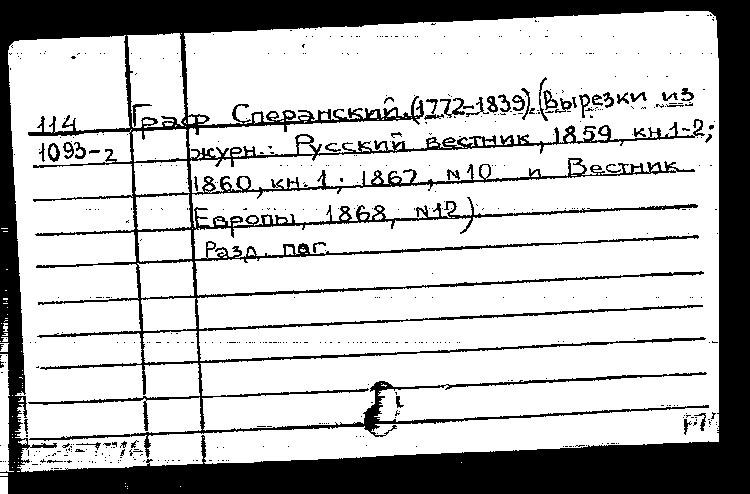 114 Граф Сперанский.(1772-1839).(Вырезки из
1093-2 журн.: Русский вестник, 1859, кн.1-2;
1860, кн.1; 1867, №10 и Вестник
Европы, 1868, №12).
Разд. паг.